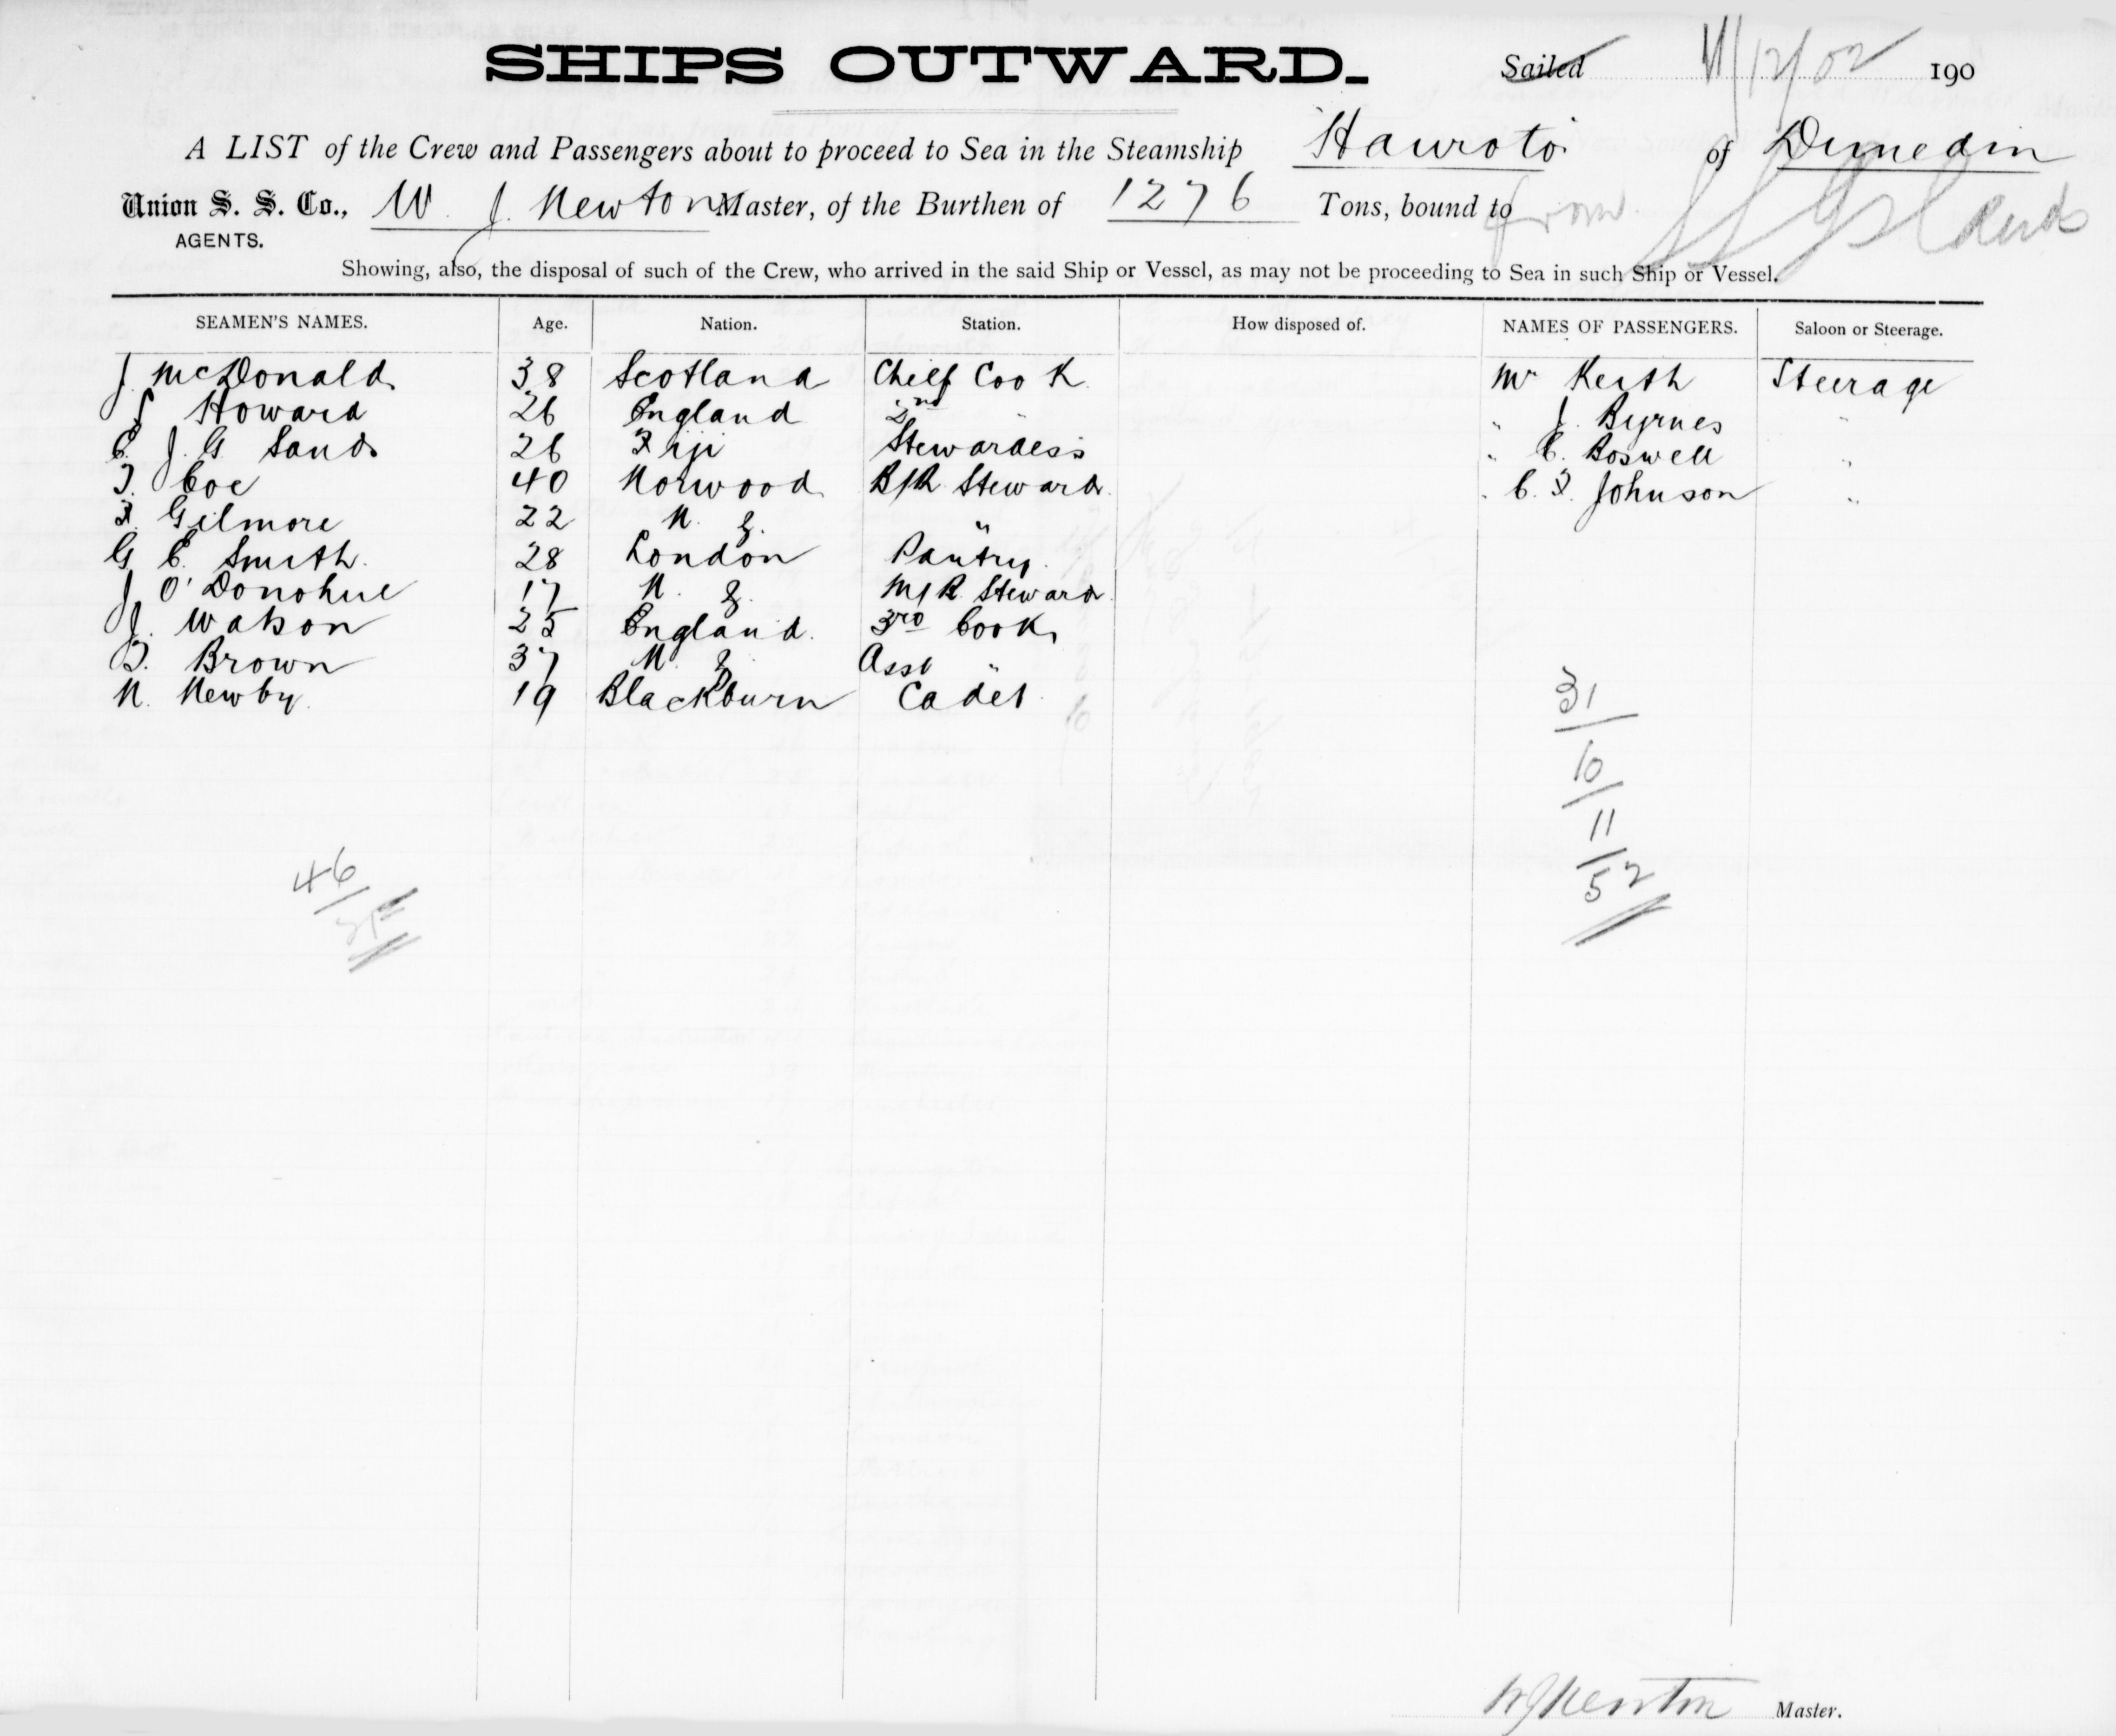 SHIPS OUTWARD.
Sailed 11/12/02 190
A LIST of the Crew and Passengers about to proceed to Sea in the Steamship Hauroto of Dunedin
Union S. S. Co., W. J. Newton Master, of the Burthen of 1276 Tons, bound to from S S Islands
AGENTS.
Showing, also, the disposal of such of the Crew, who arrived in the said Ship or Vessel, as may not be proceeding to Sea in such Ship or Vessel.
SEAMEN'S NAMES. Age. Nation. Station. How disposed of. NAMES OF PASSENGERS. Saloon or Steerage.
J. McDonald 38 Scotland Chief Cook Mr Keith Steerage
S Howard 26 England 2nd " " J. Byrnes "
C. J. G Sands 26 Fiji Stewardess " C. Boswell "
T. Coe 40 Norwood B/R Steward " C. F. Johnson "
F. Gilmore 22 N. Z. "
G C. Smith 28 London Pantry
J O'Donohue 17 N. Z. M/R Steward
J. Watson 25 England 3rd Cook
T. Brown 37 N. Z. Asst "
N. Newby 19 Blackburn Cadet
31
10
11
52
46
W J Newton Master.